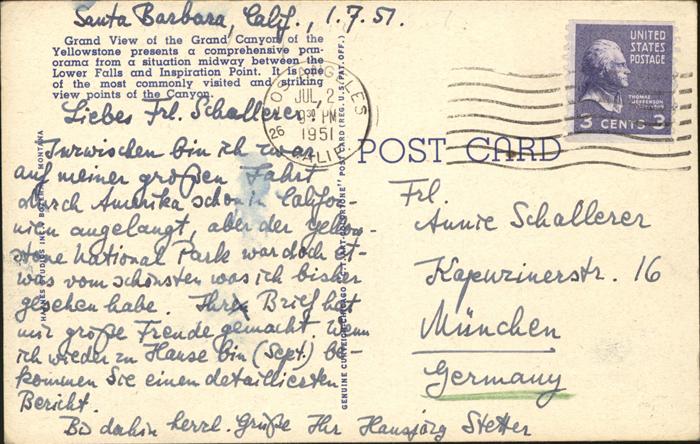 Santa Barbara, Calif., 1.7.51.
Grand View of the Grand Canyon of the
Yellowstone presents a comprehensive pan-
orama from a situation midway between the
Lower Falls and Inspiration Point. It is one
of the most commonly visited and striking
view points of the Canyon.
Liebes Frl. Schallerer
Inzwischen bin ich zwar
auf meiner großen Fahrt
durch Amerika schon in Califor-
nien angelangt, aber der Yellow-
stone National Park war doch et-
was vom schönsten was ich bisher
gesehen habe. Ihr Brief hat
mir große Freude gemacht. Wenn
ich wieder zu Hause bin (Sept.) be-
kommen Sie einen detailliersten
Bericht.
Bis dahin herzl. Grüße Ihr Hansjörg Stetter
HAYNES STUDIOS INC. BOZEMAN, MONTANA
GENUINE CURTEICH-CHICAGO "C.T. ART-COLORTONE" POST CARD (REG. U.S. PAT. OFF.)
LOS ANGELES
JUL 2
9 30 PM
1951
26 CALIF.
UNITED
STATES
POSTAGE
THOMAS JEFFERSON
3 CENTS 3
POST CARD
Frl.
Annie Schallerer
Kapuzinerstr. 16
München
Germany